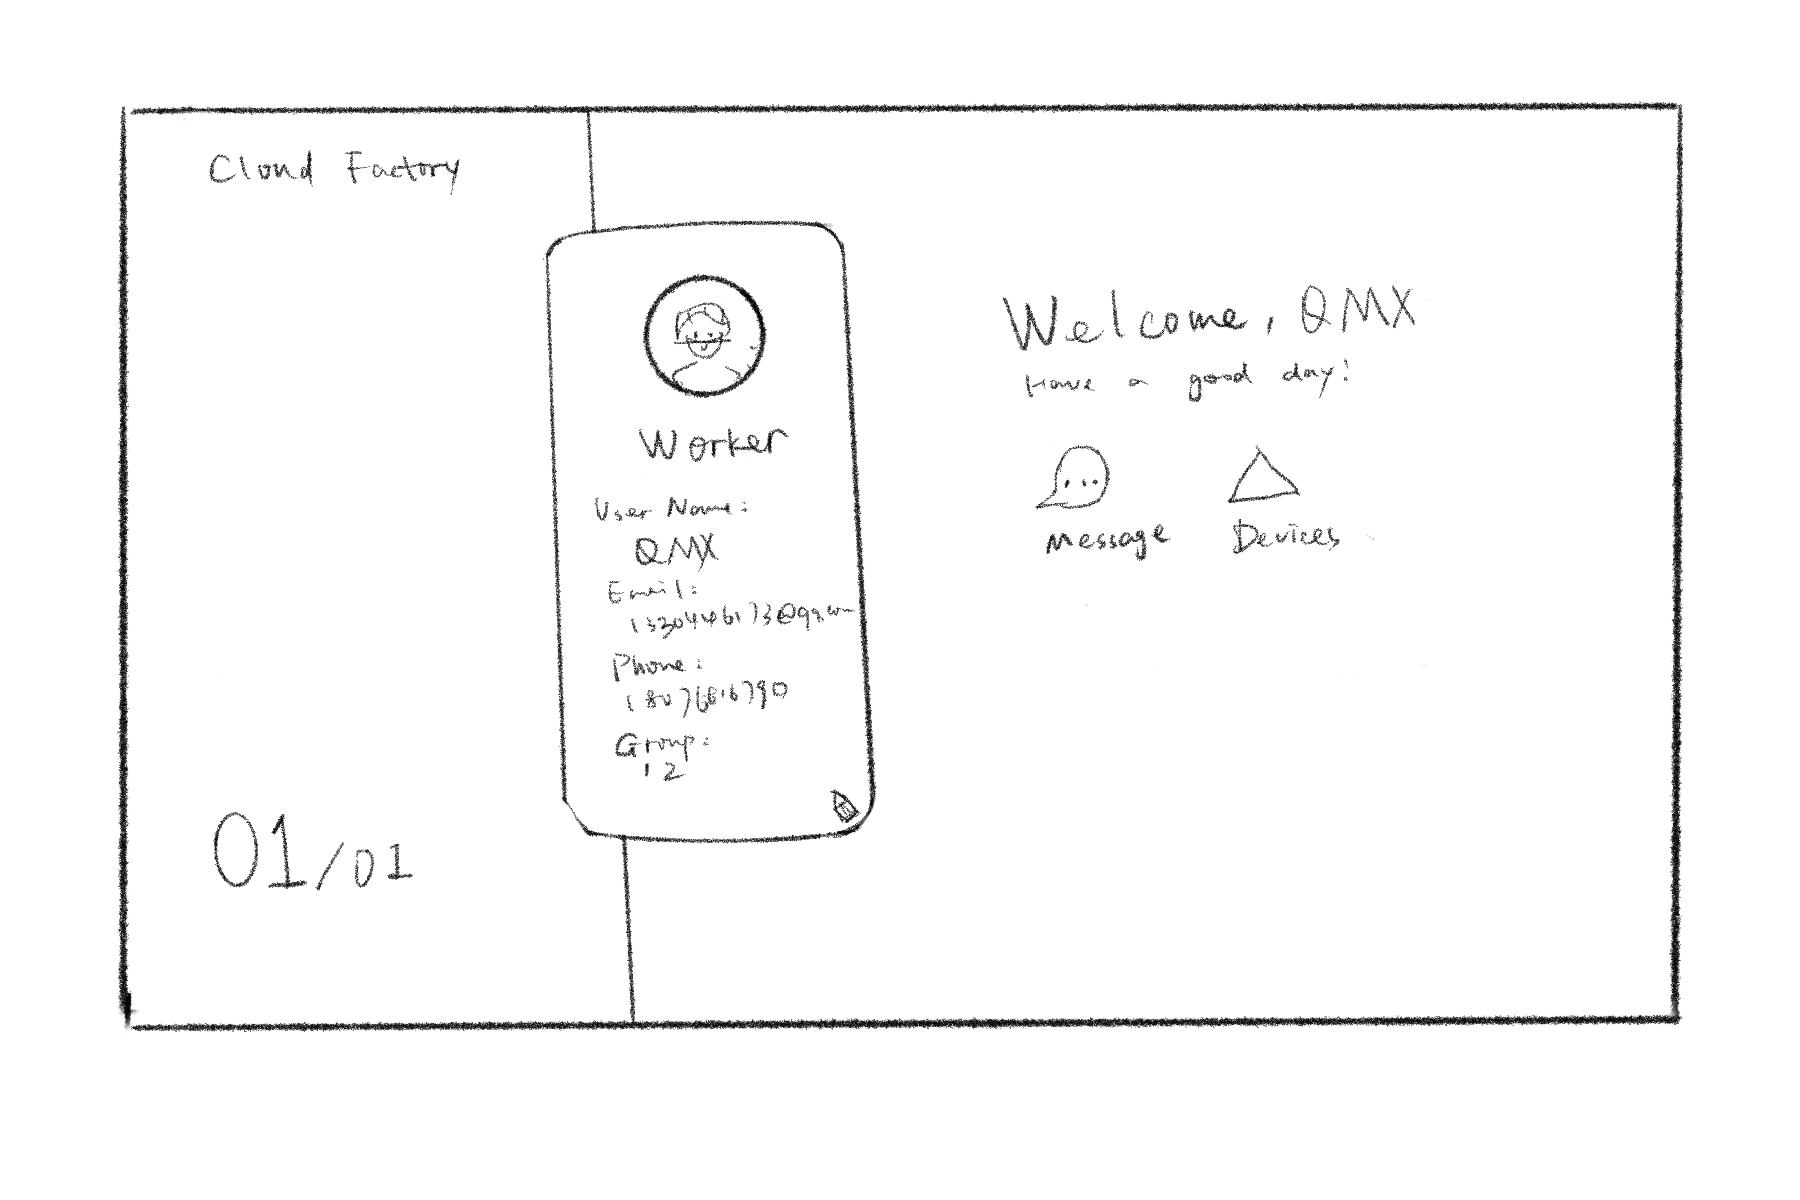 Cloud Factory
Worker
User Name:
QMX
Email:
1530446173@qq.com
Phone:
18076816790
Group:
12
Welcome, QMX
Have a good day!
Message
Devices
01/01